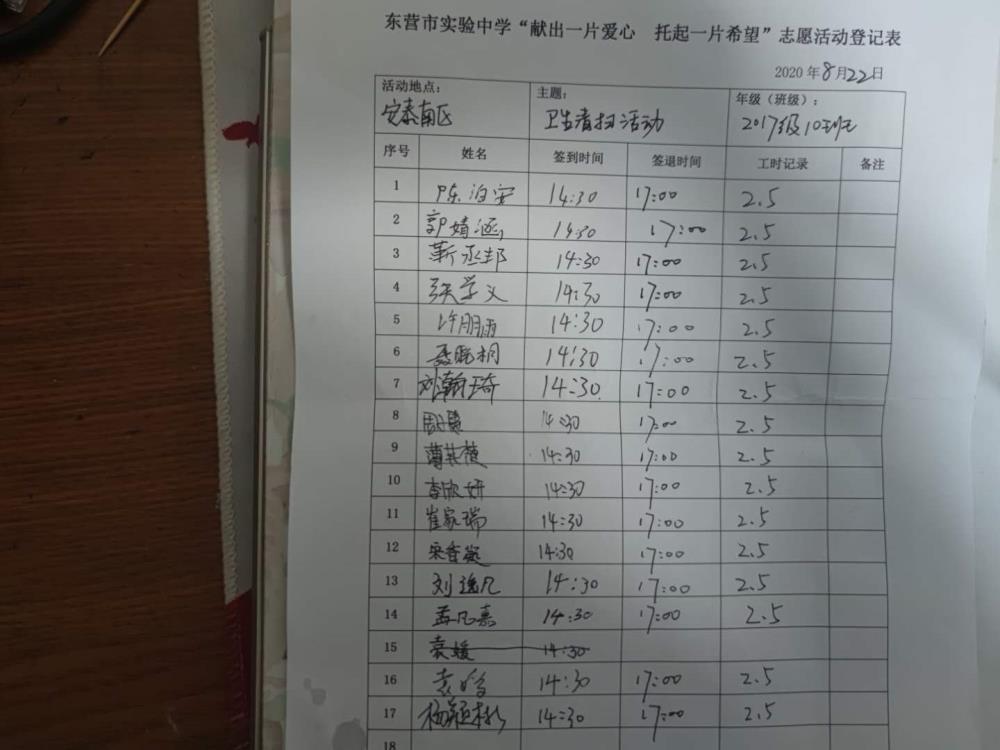 东营市实验中学“献出一片爱心 托起一片希望”志愿活动登记表
2020年8月22日
活动地点： 主题： 年级（班级）：
安泰南区 卫生清扫活动 2017级10班
序号 姓名 签到时间 签退时间 工时记录 备注
1 陈泊安 14:30 17:00 2.5
2 郭婧涵 14:30 17:00 2.5
3 靳丞邦 14:30 17:00 2.5
4 张学义 14:30 17:00 2.5
5 许朋雨 14:30 17:00 2.5
6 聂晓桐 14:30 17:00 2.5
7 刘翰琦 14:30 17:00 2.5
8 14:30 17:00 2.5
9 薄其薇 14:30 17:00 2.5
10 李欣妍 14:30 17:00 2.5
11 崔家瑞 14:30 17:00 2.5
12 14:30 17:00 2.5
13 刘逸凡 14:30 17:00 2.5
14 孟凡嘉 14:30 17:00 2.5
15 袁媛 14:30
16 14:30 17:00 2.5
17 14:30 17:00 2.5
18